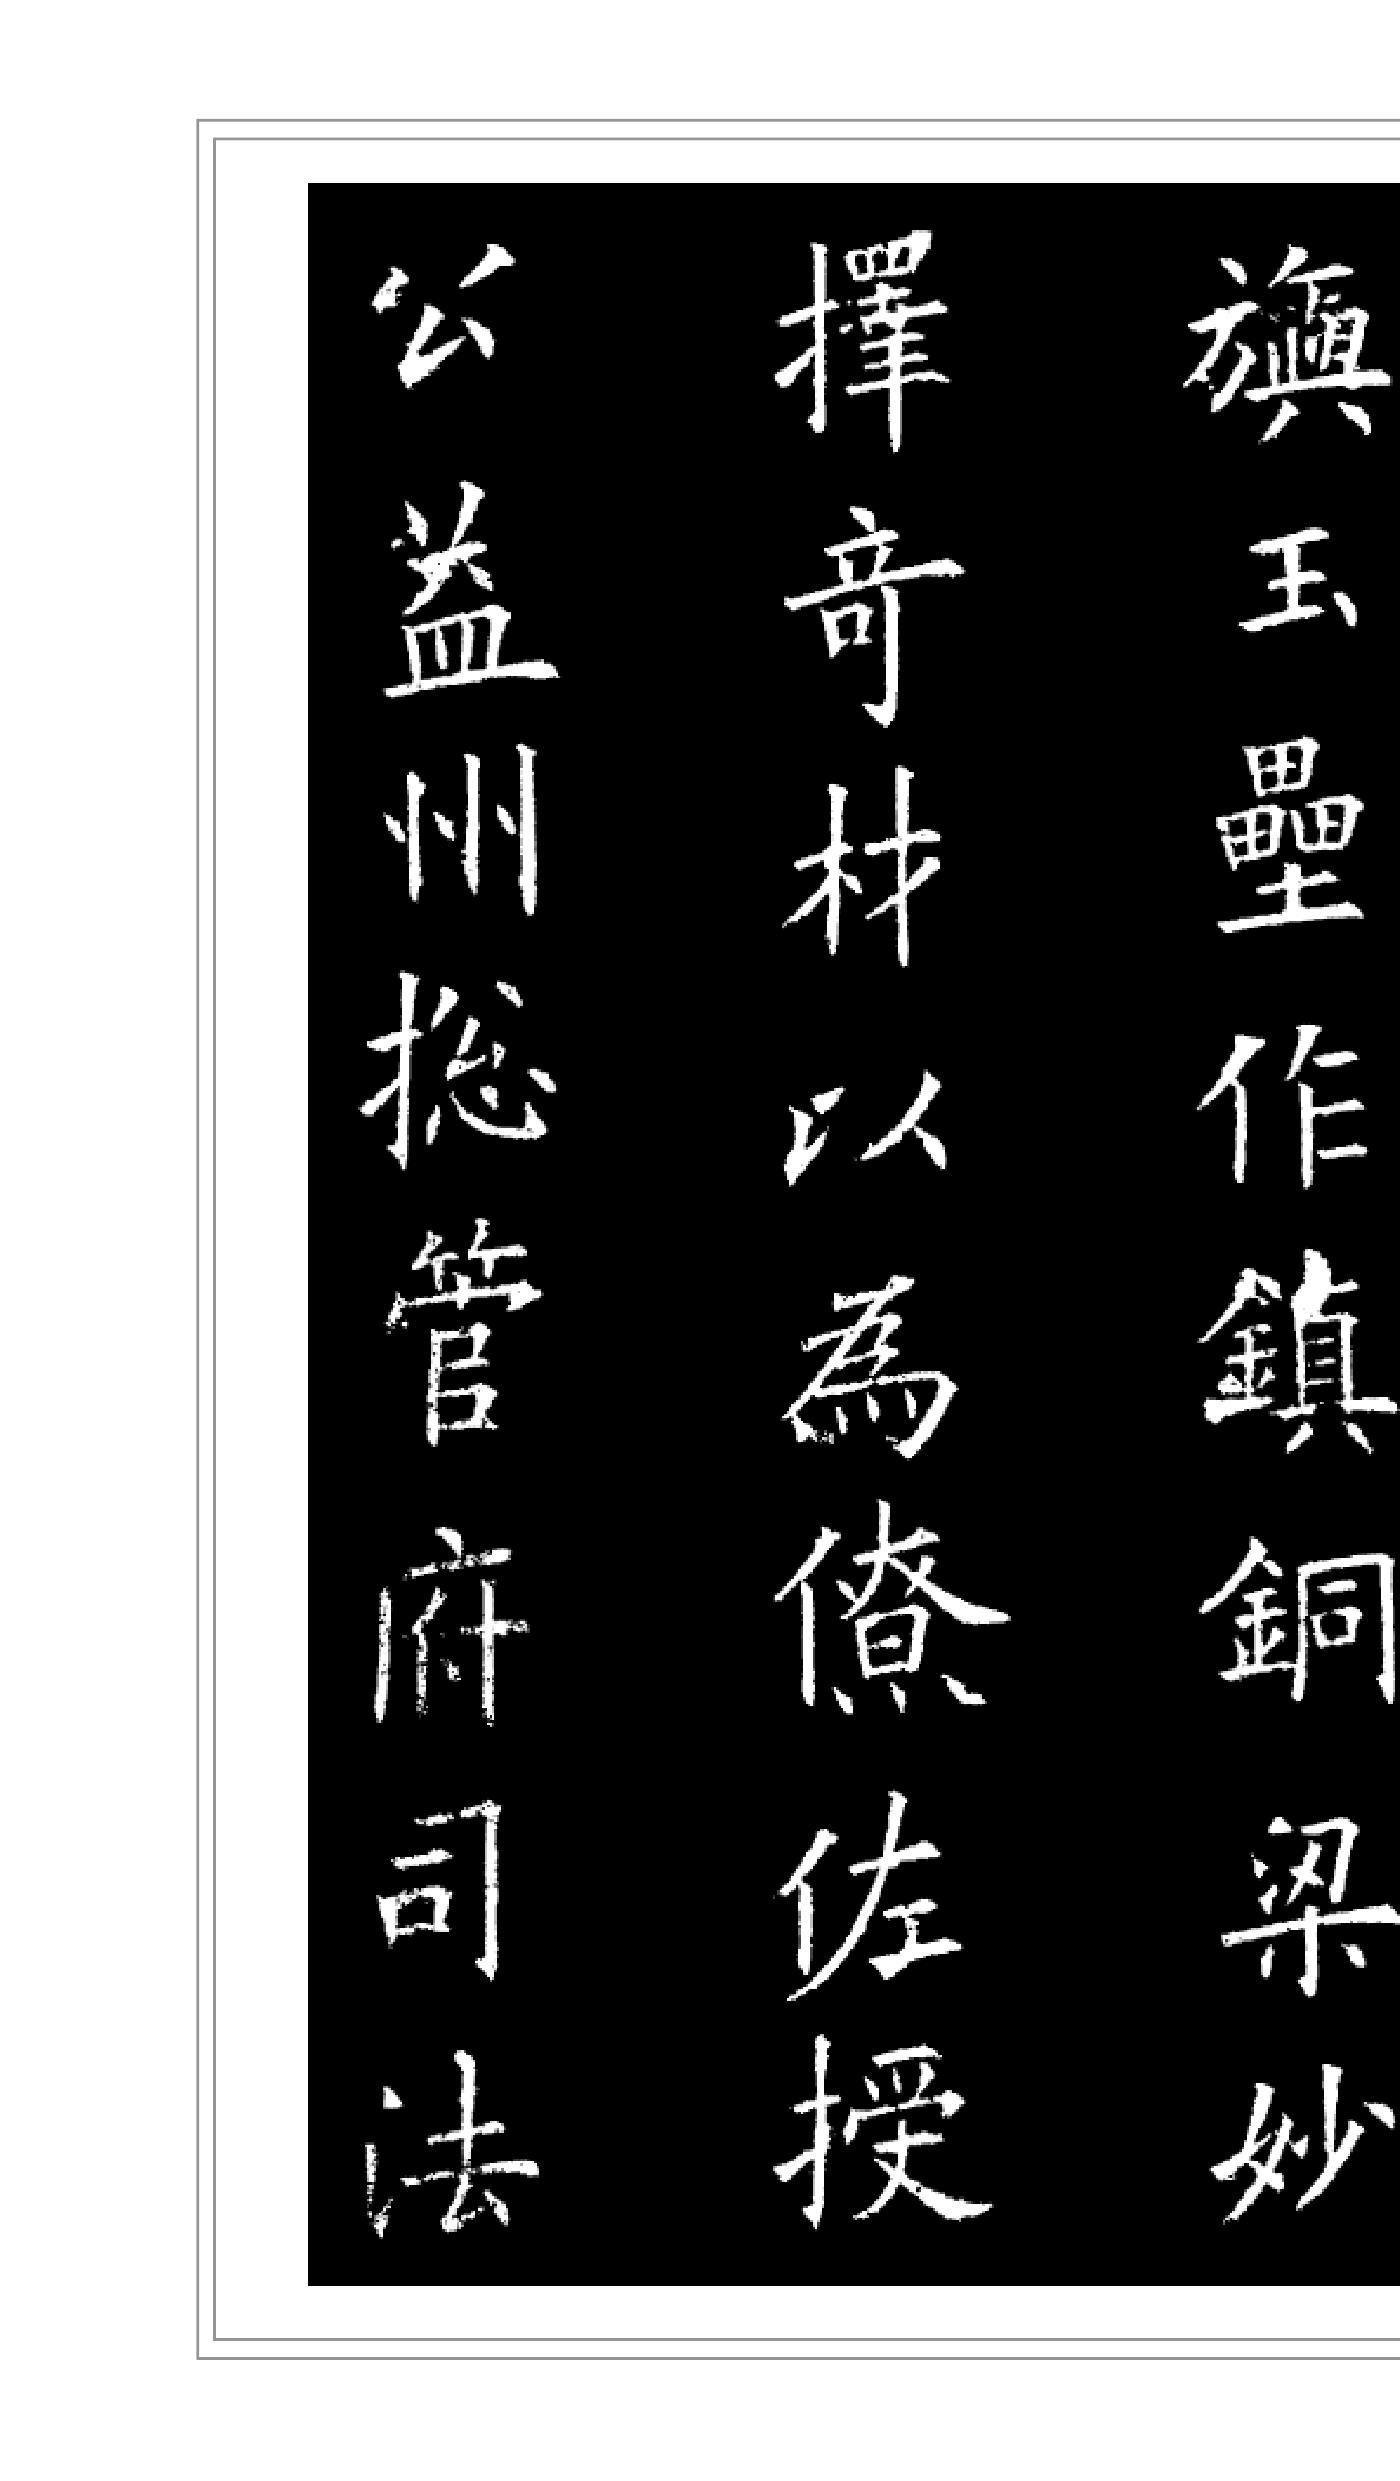 旟玉壘作鎮銅梁妙
擇奇材以為僚佐授
公益州捴管府司法